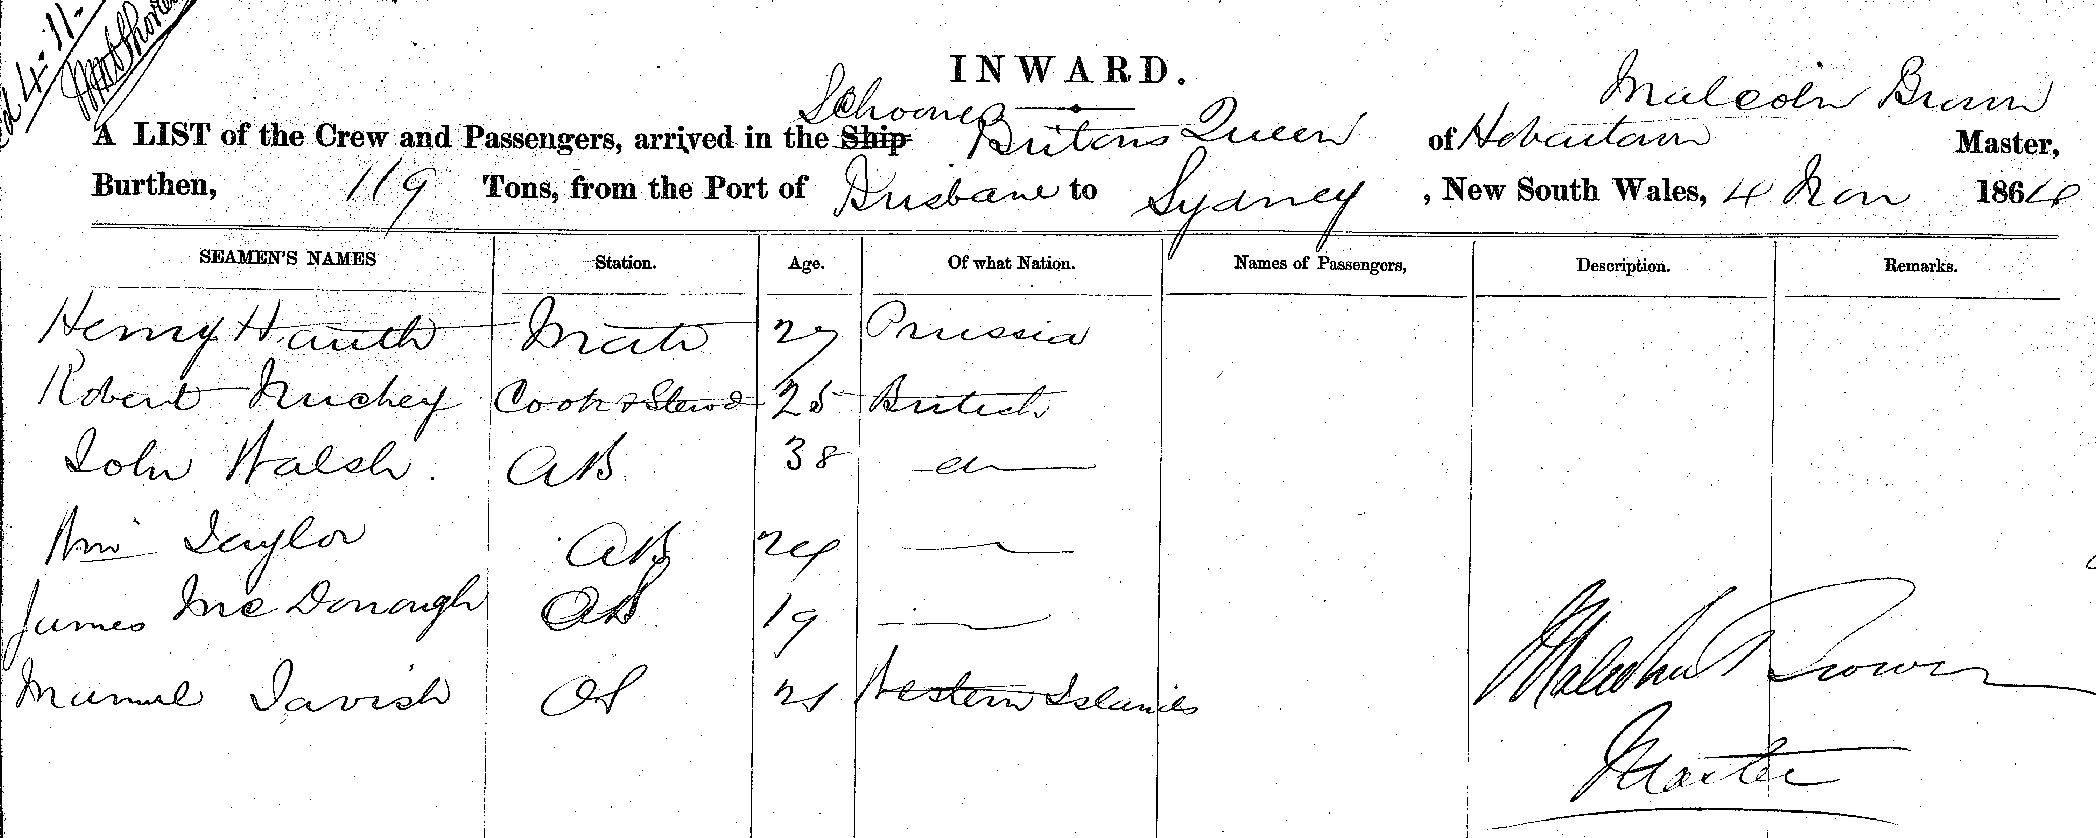 4-11-
INWARD.
Malcolm Brown
Schooner
A LIST of the Crew and Passengers, arrived in the Ship Britons Queen of Hobartown Master,
Burthen, 119 Tons, from the Port of Brisbane to Sydney, New South Wales, 4 Nov 1864
SEAMEN'S NAMES Station. Age. Of what Nation. Names of Passengers, Description. Remarks.
Henry Hauth Mate 27 Prussia
Robert Cook & Stewd 25 British
John Walsh. AB 38
Wm Taylor AB 24
James McDonough 19
Manuel Tavish OS Western Islands
Malcolm Brown
Master